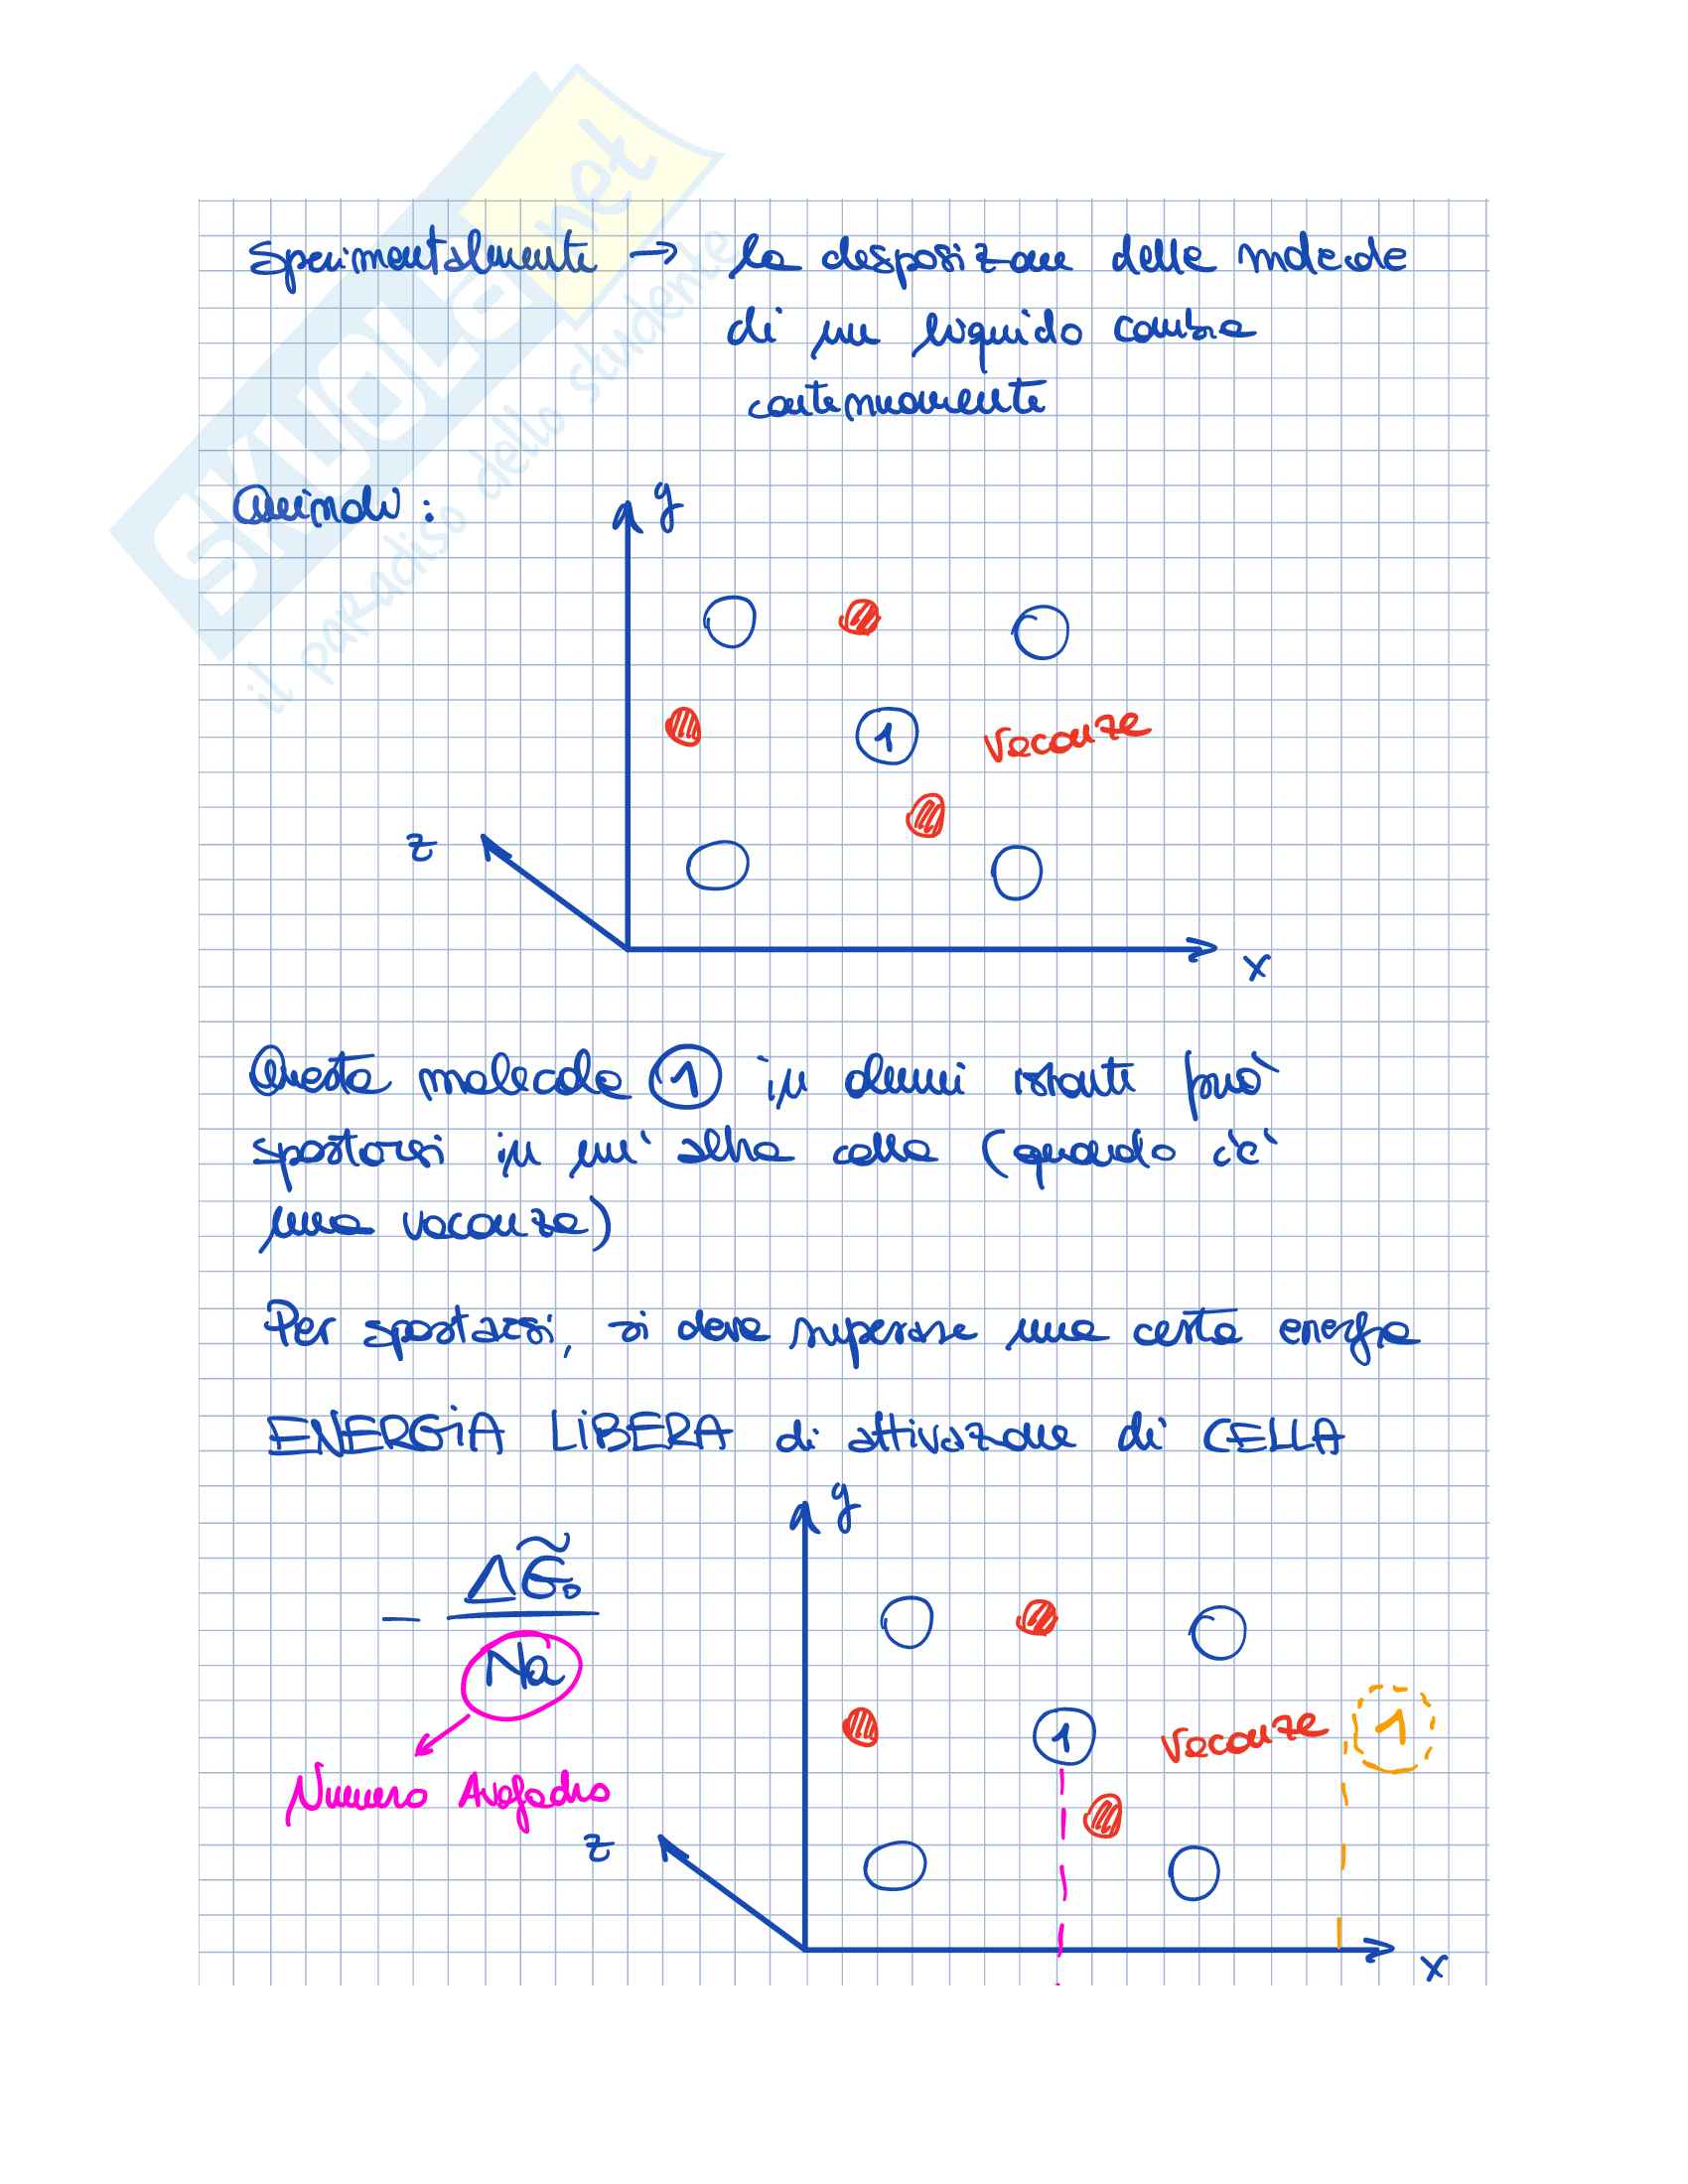 SKUOLA.net
il paradiso dello studente
Sperimentalmente → la desposizione delle molecole
di un liquido cambia
continuamente
Quindi :
y
1
vacanze
z
x
Questa molecola 1 in alcuni istanti può
spostarsi in un' altra cella (quando c'è
una vacanza)
Per spostarsi, si deve superare una certa energia
ENERGIA LIBERA di attivazione di CELLA
y
- ΔG̃₀
Na
1
vacanze
1
Numero Avogadro
z
x